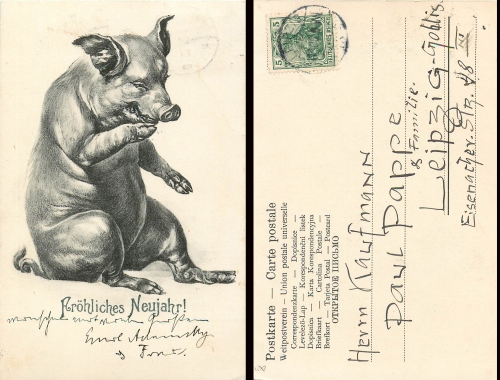 Fröhliches Neujahr!
wünschen mit vielen Grüßen
Emil Adamsky
& Frau.
5 5
DEUTSCHES REICH
Postkarte — Carte postale
Weltpostverein — Union postale universelle
Correspondenzkarte — Dopisnice —
Levelező-Lap — Korespondenční lístek
Dopisnica — Karta Korespondencyjna
Briefkaart — Cartolina Postale —
Brefkort — Tarjeta Postal — Postcard
ОТКРЫТОЕ ПИСЬМО
Herrn Kaufmann
Paul Pappe
& Familie.
Leipzig-Gohlis
Eisenacher Str. 48 III